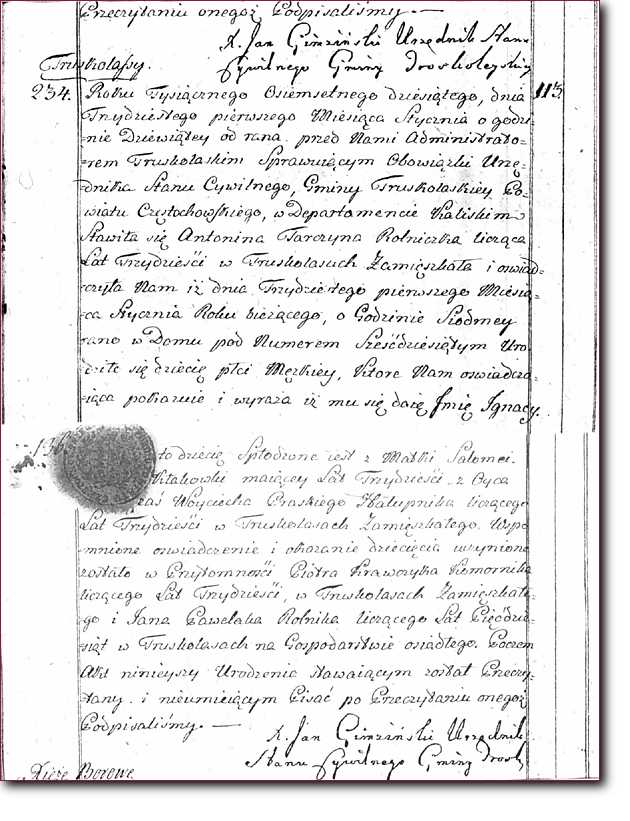 Przeczytaniu onegoż Podpisaliśmy. —
X. Jan Gimziński Urzędnik Stanu
Cywilnego Gminy
Truskolasy.
234. Roku Tysiącznego Osiemsetnego dziesiątego, dnia 113
Trzydziestego pierwszego Miesiąca Stycznia o godzi-
nie Dziewiątey od rana. przed Nami Administrato-
rem Truskolaskim Sprawuiącym Obowiązki Urzę-
dnika Stanu Cywilnego, Gminy Truskolaskiey Po-
wiatu Częstochowskiego, w Departamencie Kaliskim
Stawiła się Antonina Tarczyna Rolniczka licząca
Lat Trzydzieści w Truskolasach Zamięszkała i oswiad-
czyła Nam iż dnia Trzydziestego pierwszego Miesią-
ca Stycznia Roku bieżącego, o Godzinie Siodmey
rano w Domu pod Numerem Sześćdziesiątym Uro-
dziło się dziecię płci Męzkiey, które Nam oswiadcza-
iąca pokazuie i wyraża iż mu się daię Jmię Ignacy.
to dziecię Spłodzone iest z Matki Salomei
Witakowski maiącey Lat Trzydzieści. z Oyca
zaś Woyciecha Praskiego Hałupnika liczącego
Lat Trzydzieści w Truskolasach Zamięszkałego. Wspo-
mnione oswiadczenie i okazanie dziecięcia uczynione
zostało w Przytomności Piotra Krawczyka Komornika
liczącego Lat Trzydzieści, w Truskolasach Zamięszkałe-
go i Jana Pawelaka Rolnika liczącego Lat Pięćdzie-
siąt w Truskolasach na Gospodarstwie osiadłego. Poczem
Akt ninieyszy Urodzenia stawaiącym został Przeczy-
tany. i nieumieiącym Pisać po Przeczytaniu onegoż
Podpisaliśmy. —
X. Jan Gimziński Urzędnik
Stanu Cywilnego Gminy
Borowe